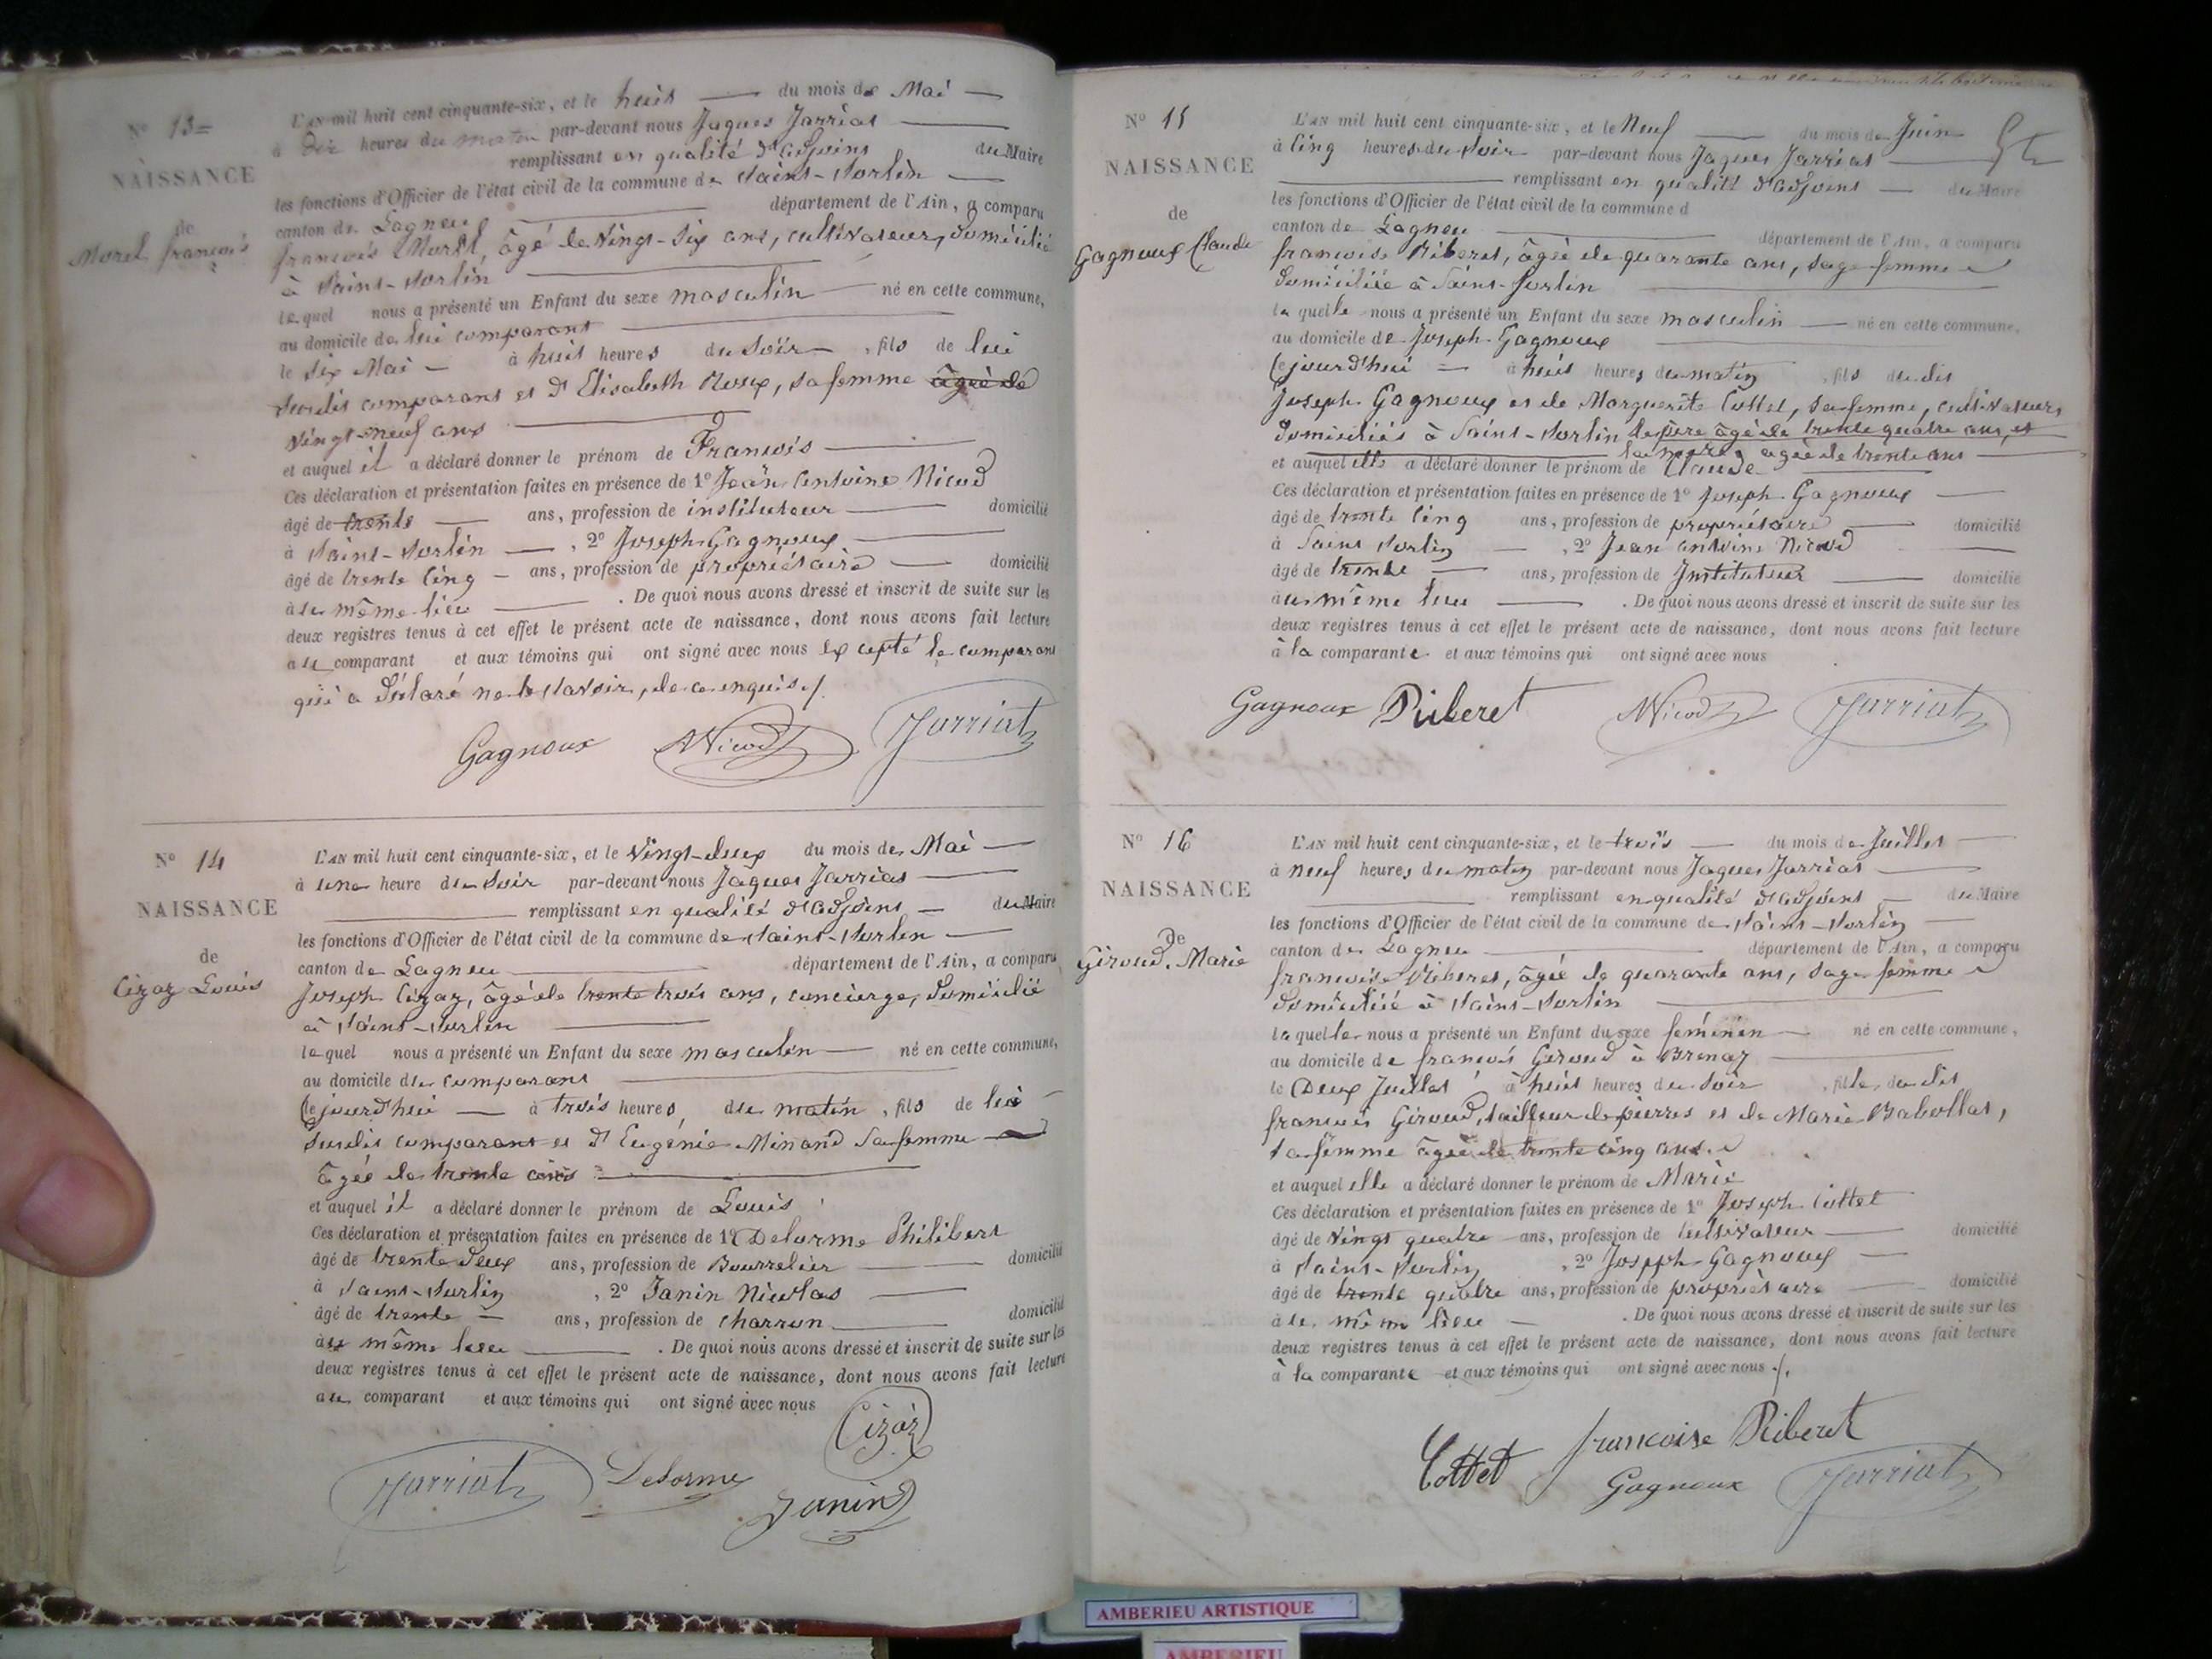 N° 13
NAISSANCE
de
Morel françois
L'AN mil huit cent cinquante-six, et le huit du mois de Mai
à Dix heures du matin par-devant nous Jaques Jarriat
remplissant en qualité d'adjoint du Maire
les fonctions d'Officier de l'état civil de la commune de Saint-Sorlin
canton de Lagneu département de l'Ain, a comparu
françois Morel, âgé de vingt-six ans, cultivateur, domicilié
à Saint-Sorlin
lequel nous a présenté un Enfant du sexe masculin né en cette commune,
au domicile de lui comparant
le six Mai à huit heures du soir, fils de lui
susdit comparant et d'Elisabeth Roux, sa femme âgée de
vingt-neuf ans
et auquel il a déclaré donner le prénom de François
Ces déclaration et présentation faites en présence de 1° Jean Antoine Nicod
âgé de trente ans, profession de instituteur domicilié
à Saint-Sorlin, 2° Joseph Gagnoux
âgé de trente cinq ans, profession de propriétaire domicilié
au même lieu. De quoi nous avons dressé et inscrit de suite sur les
deux registres tenus à cet effet le présent acte de naissance, dont nous avons fait lecture
au comparant et aux témoins qui ont signé avec nous excepté le comparant
qui a déclaré ne le savoir, de ce enquis./.
Gagnoux Nicod Jarriat
N° 14
NAISSANCE
de
Cizoz Louis
L'AN mil huit cent cinquante-six, et le vingt-deux du mois de Mai
à une heure du soir par-devant nous Jaques Jarriat
remplissant en qualité d'adjoint du Maire
les fonctions d'Officier de l'état civil de la commune de Saint-Sorlin
canton de Lagneu département de l'Ain, a comparu
Joseph Cizoz, âgé de trente trois ans, concierge, domicilié
à Saint-Sorlin
lequel nous a présenté un Enfant du sexe masculin né en cette commune,
au domicile du comparant
cejourd'hui à trois heures du matin, fils de lui
susdit comparant et d'Eugénie Minand sa femme
âgée de trente ans
et auquel il a déclaré donner le prénom de Louis
Ces déclaration et présentation faites en présence de 1° Delorme Philibert
âgé de trente deux ans, profession de Bourrelier domicilié
à Saint-Sorlin, 2° Janin Nicolas
âgé de trente ans, profession de charron domicilié
au même lieu. De quoi nous avons dressé et inscrit de suite sur les
deux registres tenus à cet effet le présent acte de naissance, dont nous avons fait lecture
au comparant et aux témoins qui ont signé avec nous
Cizoz
Jarriat Delorme
Janin
N° 15
NAISSANCE
de
Gagnoux Claude
L'AN mil huit cent cinquante-six, et le Neuf du mois de Juin
à Cinq heures du soir par-devant nous Jaques Jarriat
remplissant en qualité d'adjoint du Maire
les fonctions d'Officier de l'état civil de la commune d
canton de Lagneu département de l'Ain, a comparu
françoise Riberet, âgée de quarante ans, sage femme
domiciliée à Saint-Sorlin
laquelle nous a présenté un Enfant du sexe masculin né en cette commune,
au domicile de Joseph Gagnoux
cejourd'hui à huit heures du matin, fils du dit
Joseph Gagnoux et de Marguerite Cottet, sa femme, cultivateurs
domiciliés à Saint-Sorlin le père âgé de trente quatre ans, et
la mère, âgée de trente ans
et auquel elle a déclaré donner le prénom de Claude
Ces déclaration et présentation faites en présence de 1° Joseph Gagnoux
âgé de trente cinq ans, profession de propriétaire domicilié
à Saint Sorlin, 2° Jean antoine Nicod
âgé de trente ans, profession de Instituteur domicilié
au même lieu. De quoi nous avons dressé et inscrit de suite sur les
deux registres tenus à cet effet le présent acte de naissance, dont nous avons fait lecture
à la comparante et aux témoins qui ont signé avec nous
Gagnoux Riberet Nicod Jarriat
N° 16
NAISSANCE
de
Giroud Marie
L'AN mil huit cent cinquante-six, et le trois du mois de Juillet
à neuf heures du matin par-devant nous Jaques Jarriat
remplissant en qualité d'adjoint du Maire
les fonctions d'Officier de l'état civil de la commune de Saint-Sorlin
canton de Lagneu département de l'Ain, a comparu
françoise Riberet, âgée de quarante ans, sage femme
domiciliée à Saint-Sorlin
laquelle nous a présenté un Enfant du sexe féminin né en cette commune,
au domicile de françois Giroud à Brenaz
le Deux Juillet à huit heures du soir, fille du dit
françois Giroud, tailleur de pierres et de Marie Babollat,
sa femme âgée de trente cinq ans.
et auquel elle a déclaré donner le prénom de Marie
Ces déclaration et présentation faites en présence de 1° Joseph Cottet
âgé de vingt quatre ans, profession de cultivateur domicilié
à Saint-Sorlin, 2° Joseph Gagnoux
âgé de trente quatre ans, profession de propriétaire domicilié
au même lieu. De quoi nous avons dressé et inscrit de suite sur les
deux registres tenus à cet effet le présent acte de naissance, dont nous avons fait lecture
à la comparante et aux témoins qui ont signé avec nous ./.
Cottet françoise Riberet
Gagnoux Jarriat
AMBERIEU ARTISTIQUE
AMBERIEU